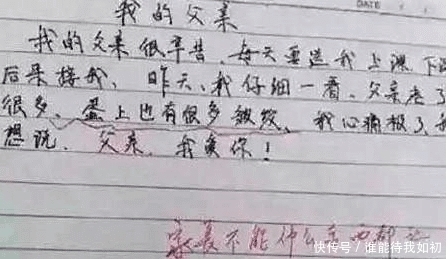 我的父亲
DATE
我的父亲很辛苦、每天要送我上课、下课
后来接我、昨天、我仔细一看、父亲老了
很多、蛋上也有很多皱纹、我心痛极了、我
想说、父亲、我爱你！
家长不能什么东西都
快传号 / 谁能待我如初